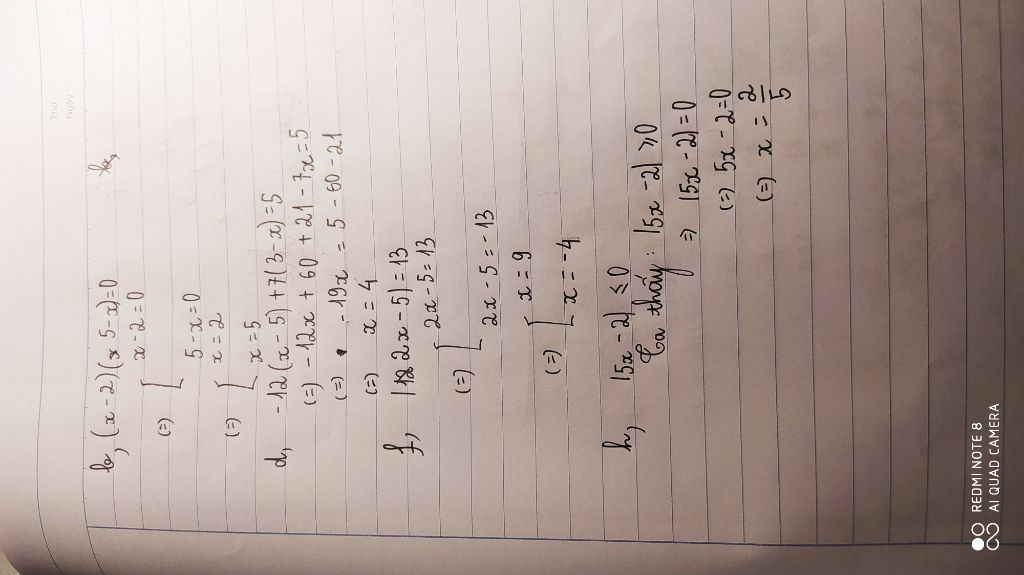 Thứ
Ngày
b, (x - 2)(5 - x) = 0
(=) [ x - 2 = 0
5 - x = 0
(=) [ x = 2
x = 5
d, -12(x - 5) + 7(3 - x) = 5
(=) -12x + 60 + 21 - 7x = 5
(=) -19x = 5 - 60 - 21
(=) x = 4
f, |2x - 5| = 13
(=) [ 2x - 5 = 13
2x - 5 = -13
(=) [ x = 9
x = -4
h, |5x - 2| ≤ 0
Ta thấy : |5x - 2| ≥ 0
=> |5x - 2| = 0
(=) 5x - 2 = 0
(=) x = 2/5
REDMI NOTE 8
AI QUAD CAMERA